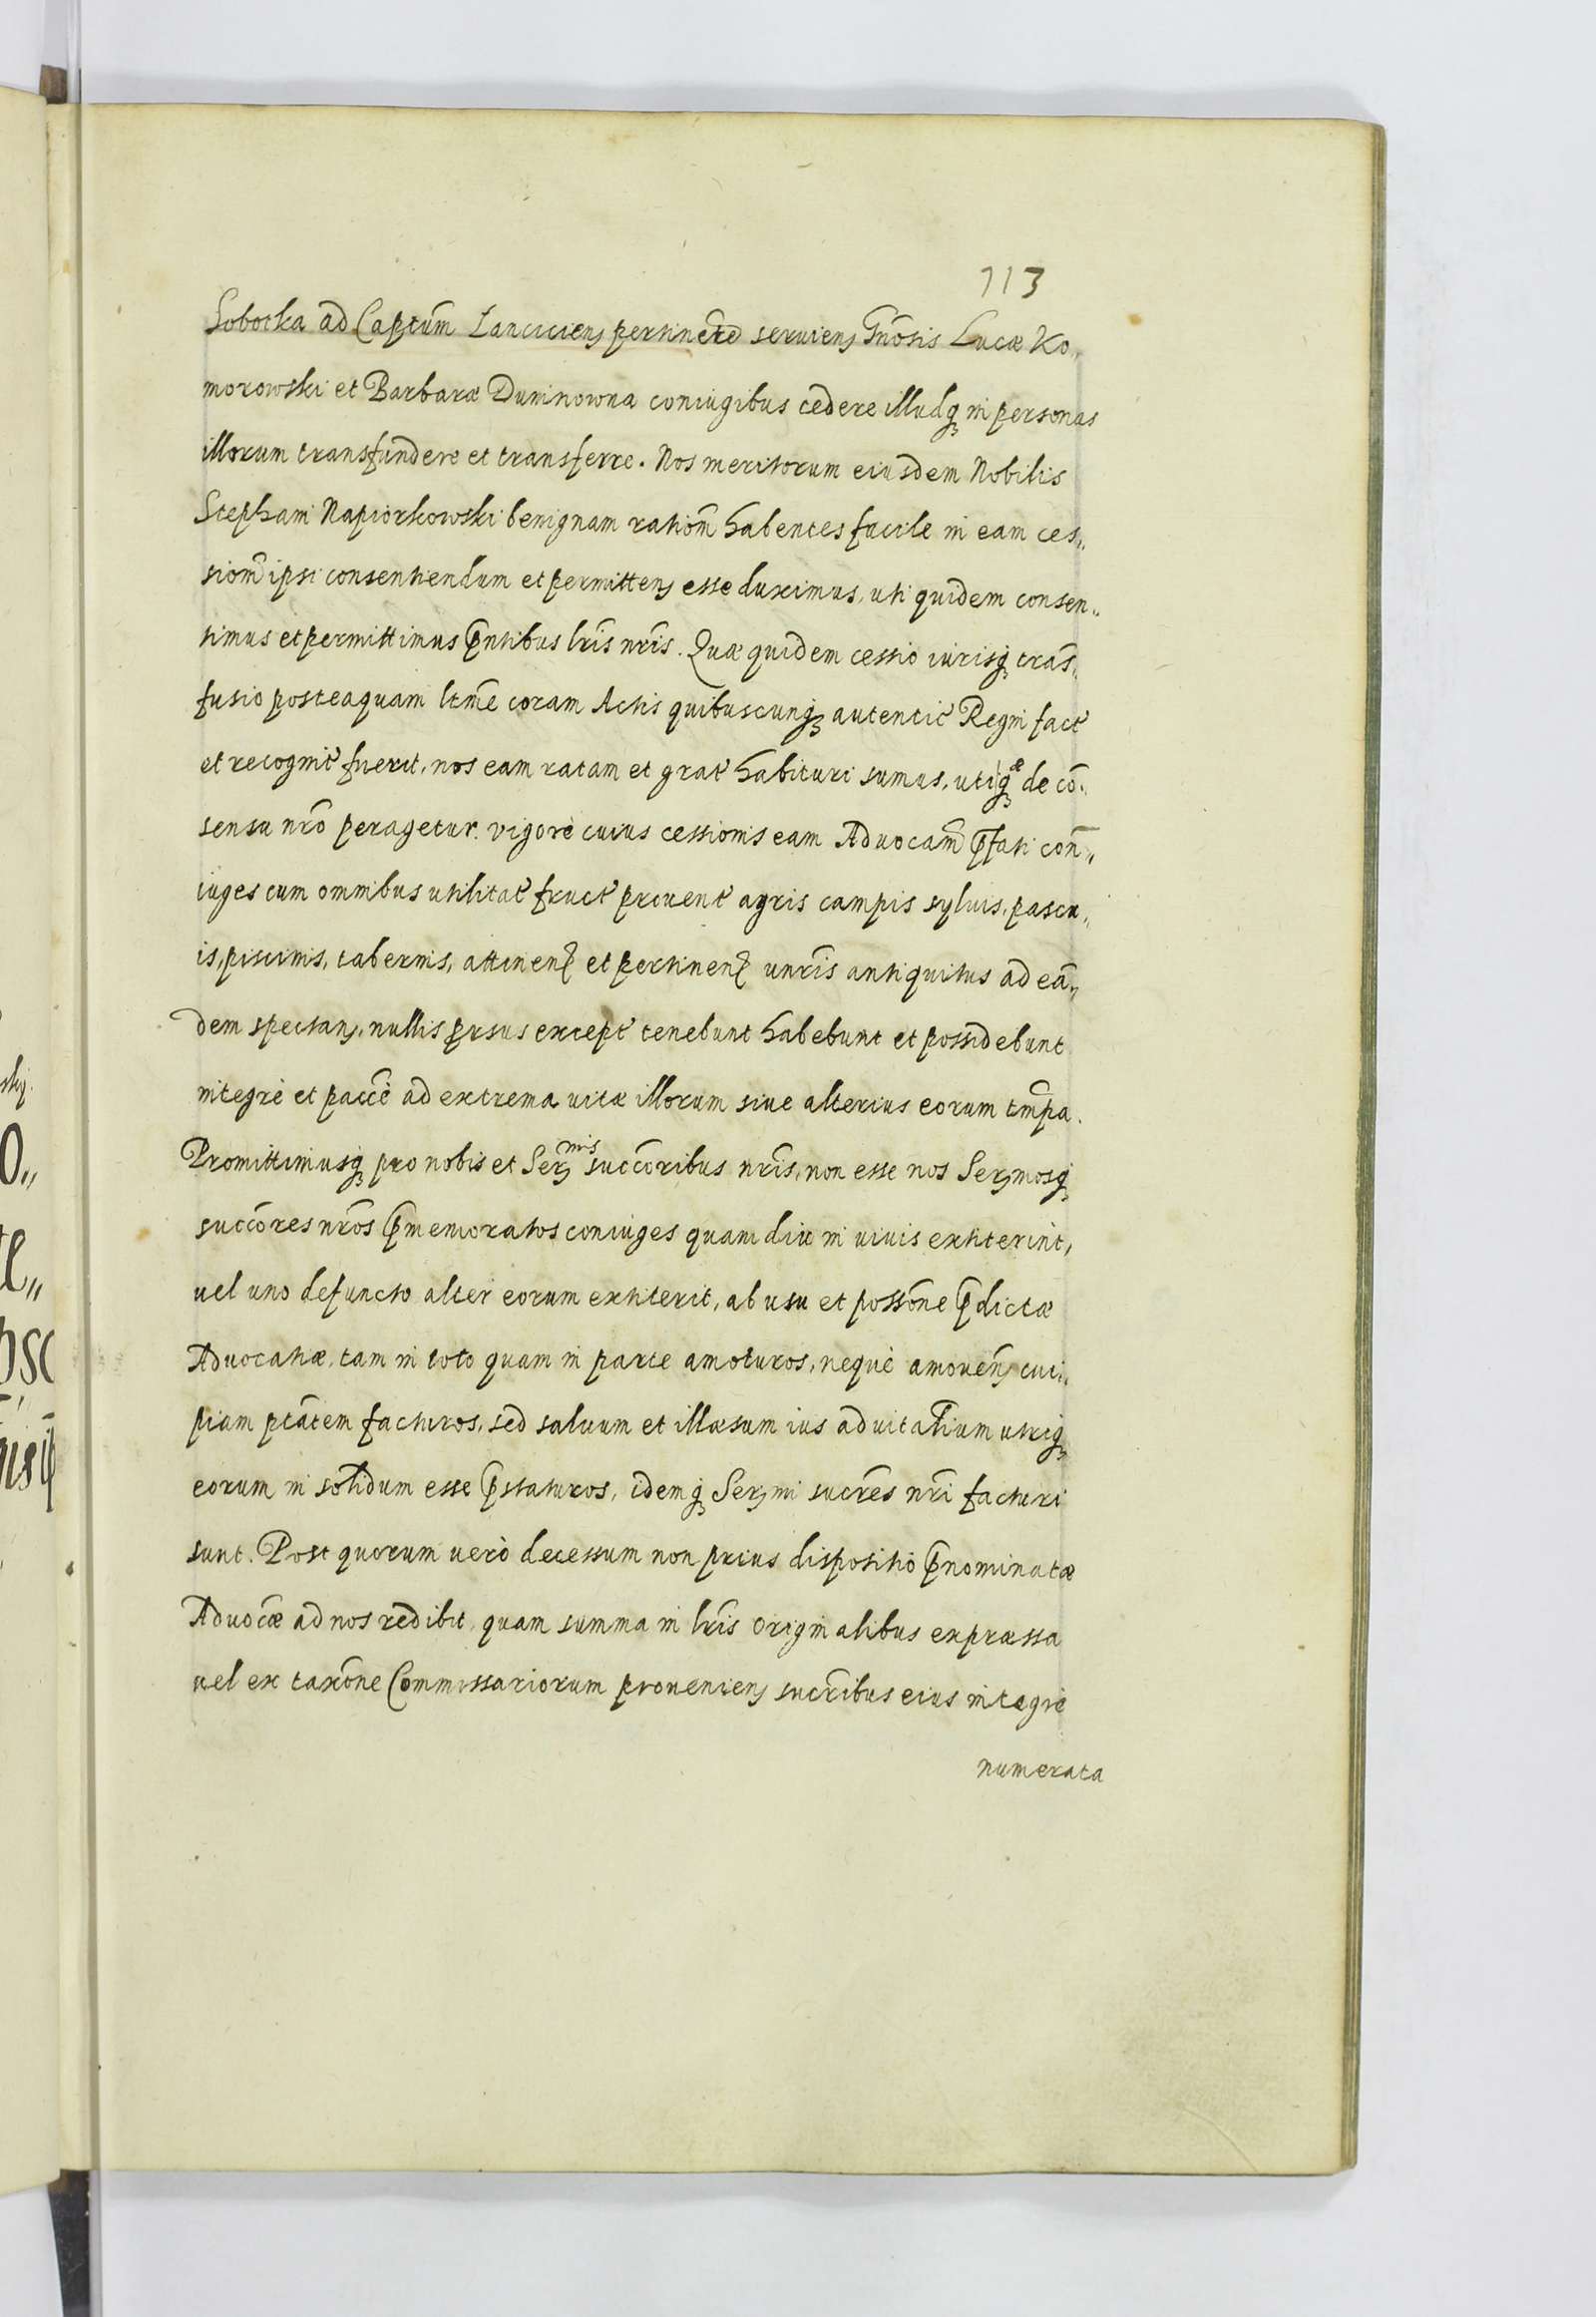 113
Sobotka ad Captum̃ Lanciciens̃ pertinere seruiens̃ Gñosis Lucæ Ko„
morowski et Barbaræ Duninowna coniugibus cedere illudq́ꝫ in personas
illorum transfundere et transferre. Nos meritorum eiusdem Nobilis
Stephani Napiorkowski benignam ratiom̃ habentes facile in eam ces„
siom̃ ipsi consentiendum et permittenꝫ esse duximus, uti quidem consen„
timus et permittimus p̃ntibus lr̃is nr̃is. Quæ quidem cessio iurisqꝫ trãs„
fusio posteaquam ltm̃e coram Actis quibuscunqꝫ autentic̃ Regni fact̃
et recognit̃ fuerit, nos eam ratam et grat̃ habituri sumus, utiqꝫ æ de cõ„
sensu nr̃o peragetur. vigore cuius cessionis eam Aduocam̃ p̃fati con̄„
iuges cum omnibus utilitat̃ fruct̃ prouent̃ agris campis syluis, pascu„
is, piscinis, tabernis, attinenꝫ et pertinenꝫ unr̃is antiquitus ad eã„
dem spectanꝫ, nullis prsus except̃ tenebunt habebunt et possidebunt
integrè et pacc̃e ad extrema uitæ illorum siue alterius eorum tm̃pa.
Promittimusqꝫ pro nobis et Serꝫ mis succ̃oribus nr̃is, non esse nos Serꝫmosqꝫ
succ̃ores nr̃os p̃memoratos coniuges quam diu in uiuis extiterint,
uel uno defuncto alter eorum extiterit, ab usu et poss̃one p̃dictæ
Aduocatiæ, tam in toto quam in parte amoturos, neque amouenꝫ cui„
piam ptãtem facturos, sed saluum et illæsum ius aduitalium utriqꝫ
eorum in solidum esse p̃staturos, idemqꝫ Serꝫmi sucr̃es nr̃i facturi
sunt. Post quorum uerò decessum non prius dispositio p̃nominatæ
Aduoc̃æ ad nos redibit, quam summa in lr̃is originalibus expræssa
uel ex tax̃one Commissariorum proueniens̃ sucr̃ibus eius integrè
numerata